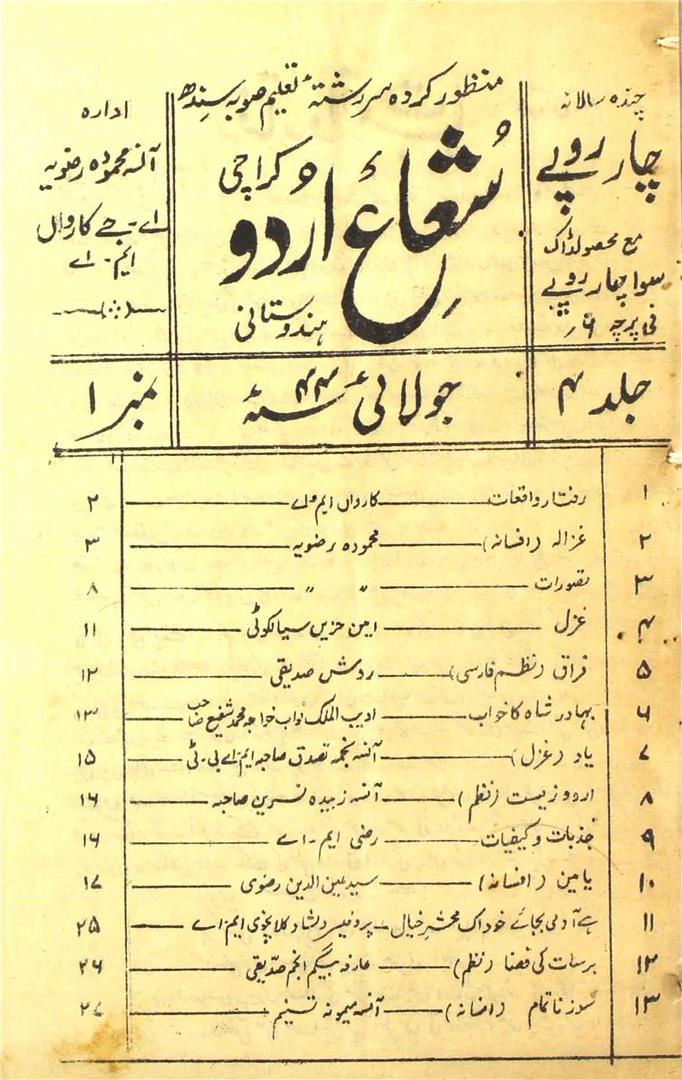 منظور کردہ سررشتۂ تعلیم صوبہ سندھ
چندہ سالانہ
چار روپے
مع محصولڈاک
سوا چار روپے
فی پرچہ ۶؍
شعاعِ اُردو
کراچی
ہندوستانی
ادارہ
آنسہ محمودہ رضویہ
اے۔ جے کارواں
ایم۔ اے
جلد ۴
جولائی ۴۴ سنہ
نمبر ۱
۱ رفتار واقعات کارواں ایم اے ۲
۲ غزالہ (افسانہ) محمودہ رضویہ ۳
۳ تصورات " " ۸
۴ غزل امین حزیں سیالکوٹی ۱۱
۵ فراق (نظم فارسی) روش صدیقی ۱۲
۶ بہادر شاہ کا خواب ادیب الملک نواب خواجہ محمد شفیع صاحب ۱۳
۷ یاد (غزل) آنسہ نجمہ تصدق صاحبہ ایم۔اے بی۔ٹی ۱۵
۸ اردو زیست (نظم) آنسہ زبیدہ نسرین صاحبہ ۱۶
۹ جذبات و کیفیات رضی ایم۔ اے ۱۶
۱۰ یامین (افسانہ) سید معین الدین رضوی ۱۷
۱۱ ہے آدمی بجائے خود اک محشرِ خیال پروفیسر دلشاد کلانچوی ایم اے ۲۵
۱۲ برسات کی فضا (نظم) عارفہ بیگم انجم صدیقی ۲۶
۱۳ سوز ناتمام (افسانہ) آنسہ میمونہ تسنیم ۲۷